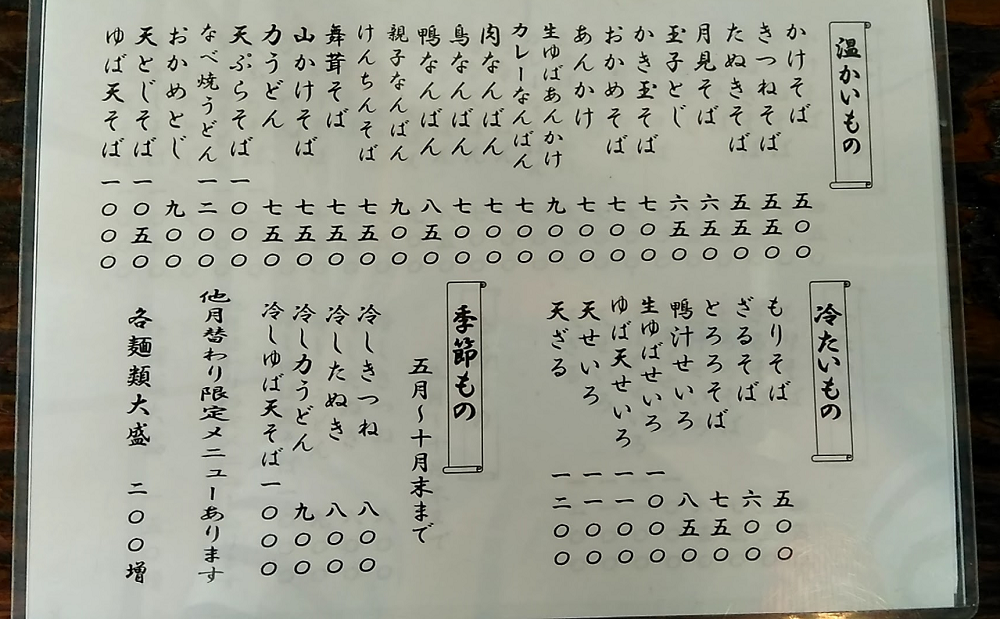 温かいもの
かけそば 五〇〇
きつねそば 五五〇
たぬきそば 五五〇
月見そば 六五〇
玉子とじ 六五〇
かき玉そば 七〇〇
おかめそば 七〇〇
あんかけ 七〇〇
生ゆばあんかけ 九〇〇
カレーなんばん 七〇〇
肉なんばん 七〇〇
鳥なんばん 七〇〇
鴨なんばん 八五〇
親子なんばん 九〇〇
けんちんそば 七五〇
舞茸そば 七五〇
山かけそば 七五〇
力うどん 七五〇
天ぷらそば 一〇〇〇
なべ焼うどん 一二〇〇
おかめとじ 九〇〇
天とじそば 一〇五〇
ゆば天そば 一〇〇〇
冷たいもの
もりそば 五〇〇
ざるそば 六〇〇
とろろそば 七五〇
鴨汁せいろ 八五〇
生ゆばせいろ 一〇〇〇
ゆば天せいろ 一一〇〇
天せいろ 一一〇〇
天ざる 一二〇〇
季節もの
五月〜十月末まで
冷しきつね 八〇〇
冷したぬき 八〇〇
冷し力うどん 九〇〇
冷しゆば天そば 一〇〇〇
他月替わり限定メニューあります
各麺類大盛 二〇〇増